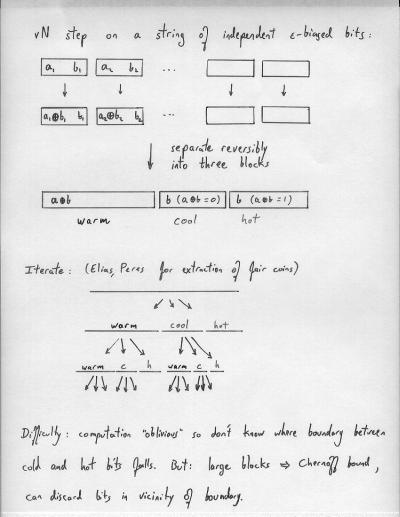 vN step on a string of independent ε-biased bits:
a₁ b₁ a₂ b₂ ...
a₁⊕b₁ b₁ a₂⊕b₂ b₂ ...
separate reversibly
into three blocks
a⊕b b (a⊕b=0) b (a⊕b=1)
warm cool hot
Iterate: (Elias, Peres for extraction of fair coins)
warm cool hot
warm c h warm c h
Difficulty: computation "oblivious" so don't know where boundary between
cold and hot bits falls. But: large blocks ⇒ Chernoff bound,
can discard bits in vicinity of boundary.